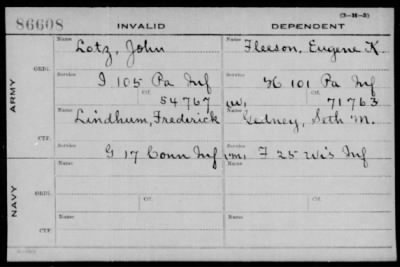 (3-11-3)
86608 INVALID DEPENDENT
Name Name
Lotz, John Fleeson, Eugene K.
ORIG.
Service Service
I, 105 Pa Inf H 101 Pa Inf
Ctf. Ctf.
54767 (W) 71763
ARMY
Name Name
Lindhum, Frederick Gedney, Seth M.
CTF.
Service Service
G 17 Conn Inf (M) F 25 Wis Inf
Name Name
ORIG.
Service Service
Ctf. Ctf.
NAVY
Name Name
CTF.
Service Service